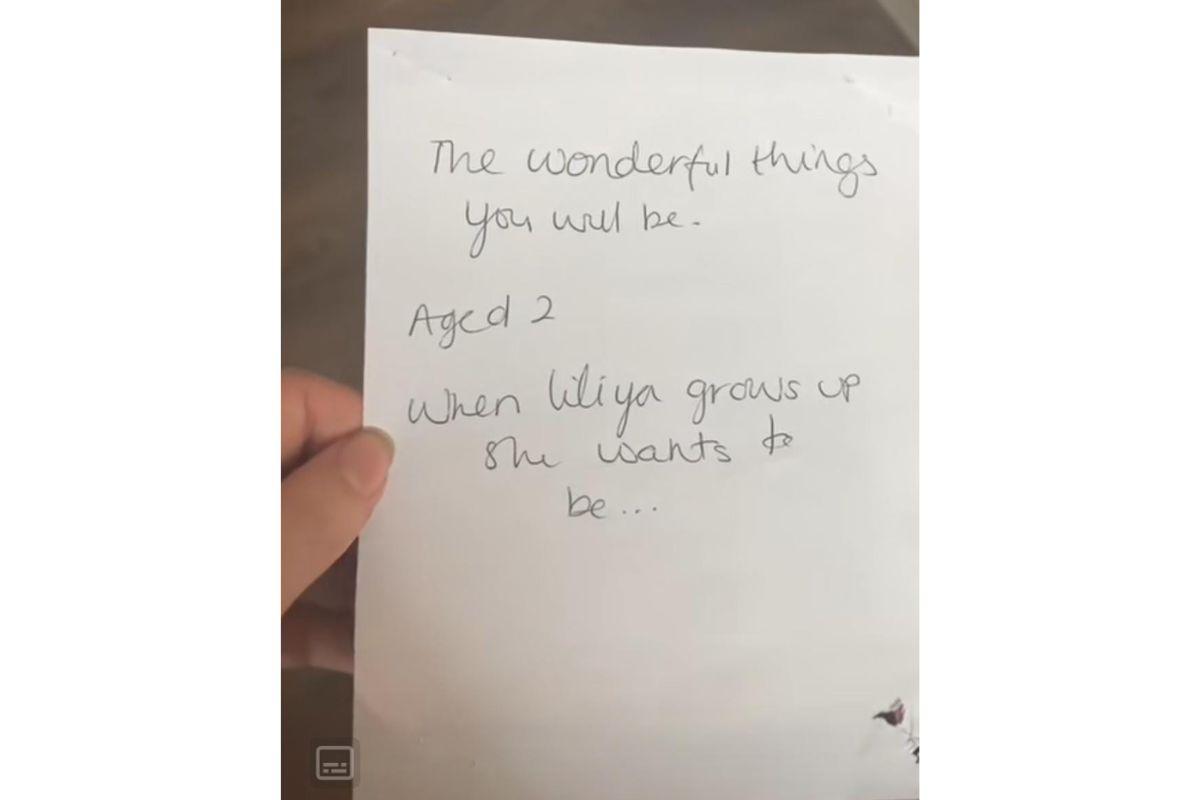 The wonderful things
you will be.
Aged 2
When liliya grows up
she wants to
be...